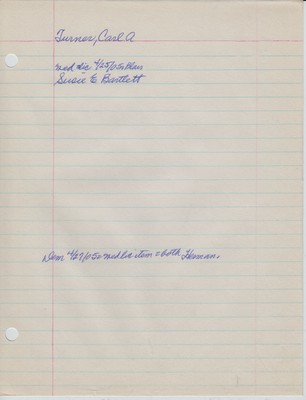 Turner, Carl A
med lic 4/25/05 Blan
Susie E Bartlett
Dem 4/27/05 med lic item = both Herman.